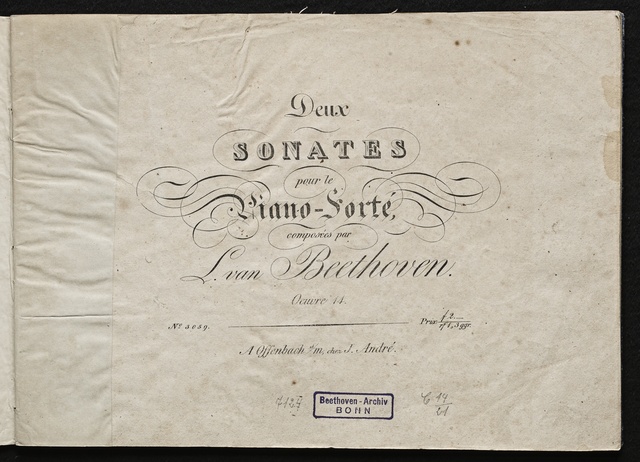 Deux
SONATES
pour le
Piano-Forté,
composées par
L. van Beethoven.
Oeuvre 14.
Nº 5059. Prix f 2.
A Offenbach s/m, chez J. André.
Beethoven-Archiv
BONN
C 14/21